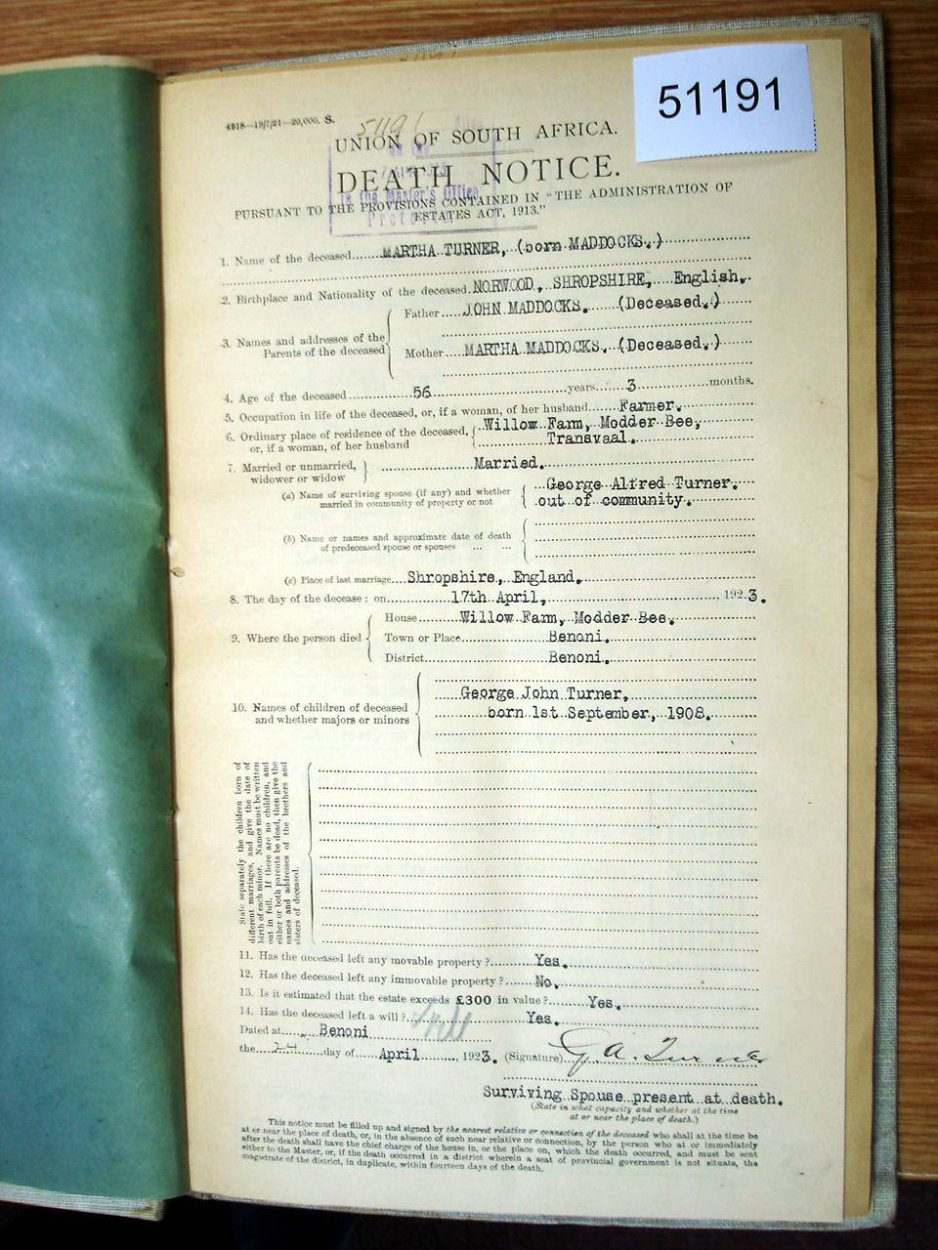 51191
4218—19/7/21—20,000. S.
51191
UNION OF SOUTH AFRICA.
DEATH NOTICE.
in the Master's Office
Pretoria
PURSUANT TO THE PROVISIONS CONTAINED IN "THE ADMINISTRATION OF
ESTATES ACT, 1913."
1. Name of the deceased MARTHA TURNER, (born MADDOCKS.)
2. Birthplace and Nationality of the deceased NORWOOD, SHROPSHIRE, English.
3. Names and addresses of the Parents of the deceased
Father JOHN MADDOCKS. (Deceased.)
Mother MARTHA MADDOCKS. (Deceased.)
4. Age of the deceased 56 years 3 months.
5. Occupation in life of the deceased, or, if a woman, of her husband Farmer.
6. Ordinary place of residence of the deceased, Willow Farm, Modder Bee,
or, if a woman, of her husband Transvaal.
7. Married or unmarried, widower or widow Married.
(a) Name of surviving spouse (if any) and whether George Alfred Turner.
married in community of property or not out of community.
(b) Name or names and approximate date of death
of predeceased spouse or spouses ... ...
(c) Place of last marriage Shropshire, England.
8. The day of the decease: on 17th April, 1923.
9. Where the person died
House Willow Farm, Modder Bee.
Town or Place Benoni.
District Benoni.
10. Names of children of deceased and whether majors or minors
George John Turner.
born 1st September, 1908.
State separately the children born of
different marriages, and give the date of
birth of each minor. Names must be written
out in full. If there are no children, and
either or both parents be dead, then give the
names and addresses of the brothers and
sisters of deceased.
11. Has the deceased left any movable property? Yes.
12. Has the deceased left any immovable property? No.
13. Is it estimated that the estate exceeds £300 in value? Yes.
14. Has the deceased left a will? Yes.
Dated at Benoni
the 24 day of April, 1923. (Signature) G. A. Turner
Surviving Spouse present at death.
(State in what capacity and whether at the time
at or near the place of death.)
This notice must be filled up and signed by the nearest relative or connection of the deceased who shall at the time be
at or near the place of death, or, in the absence of such near relative or connection, by the person who at or immediately
after the death shall have the chief charge of the house in, or the place on, which the death occurred, and must be sent
either to the Master, or, if the death occurred in a district wherein a seat of provincial government is not situate, the
magistrate of the district, in duplicate, within fourteen days of the death.